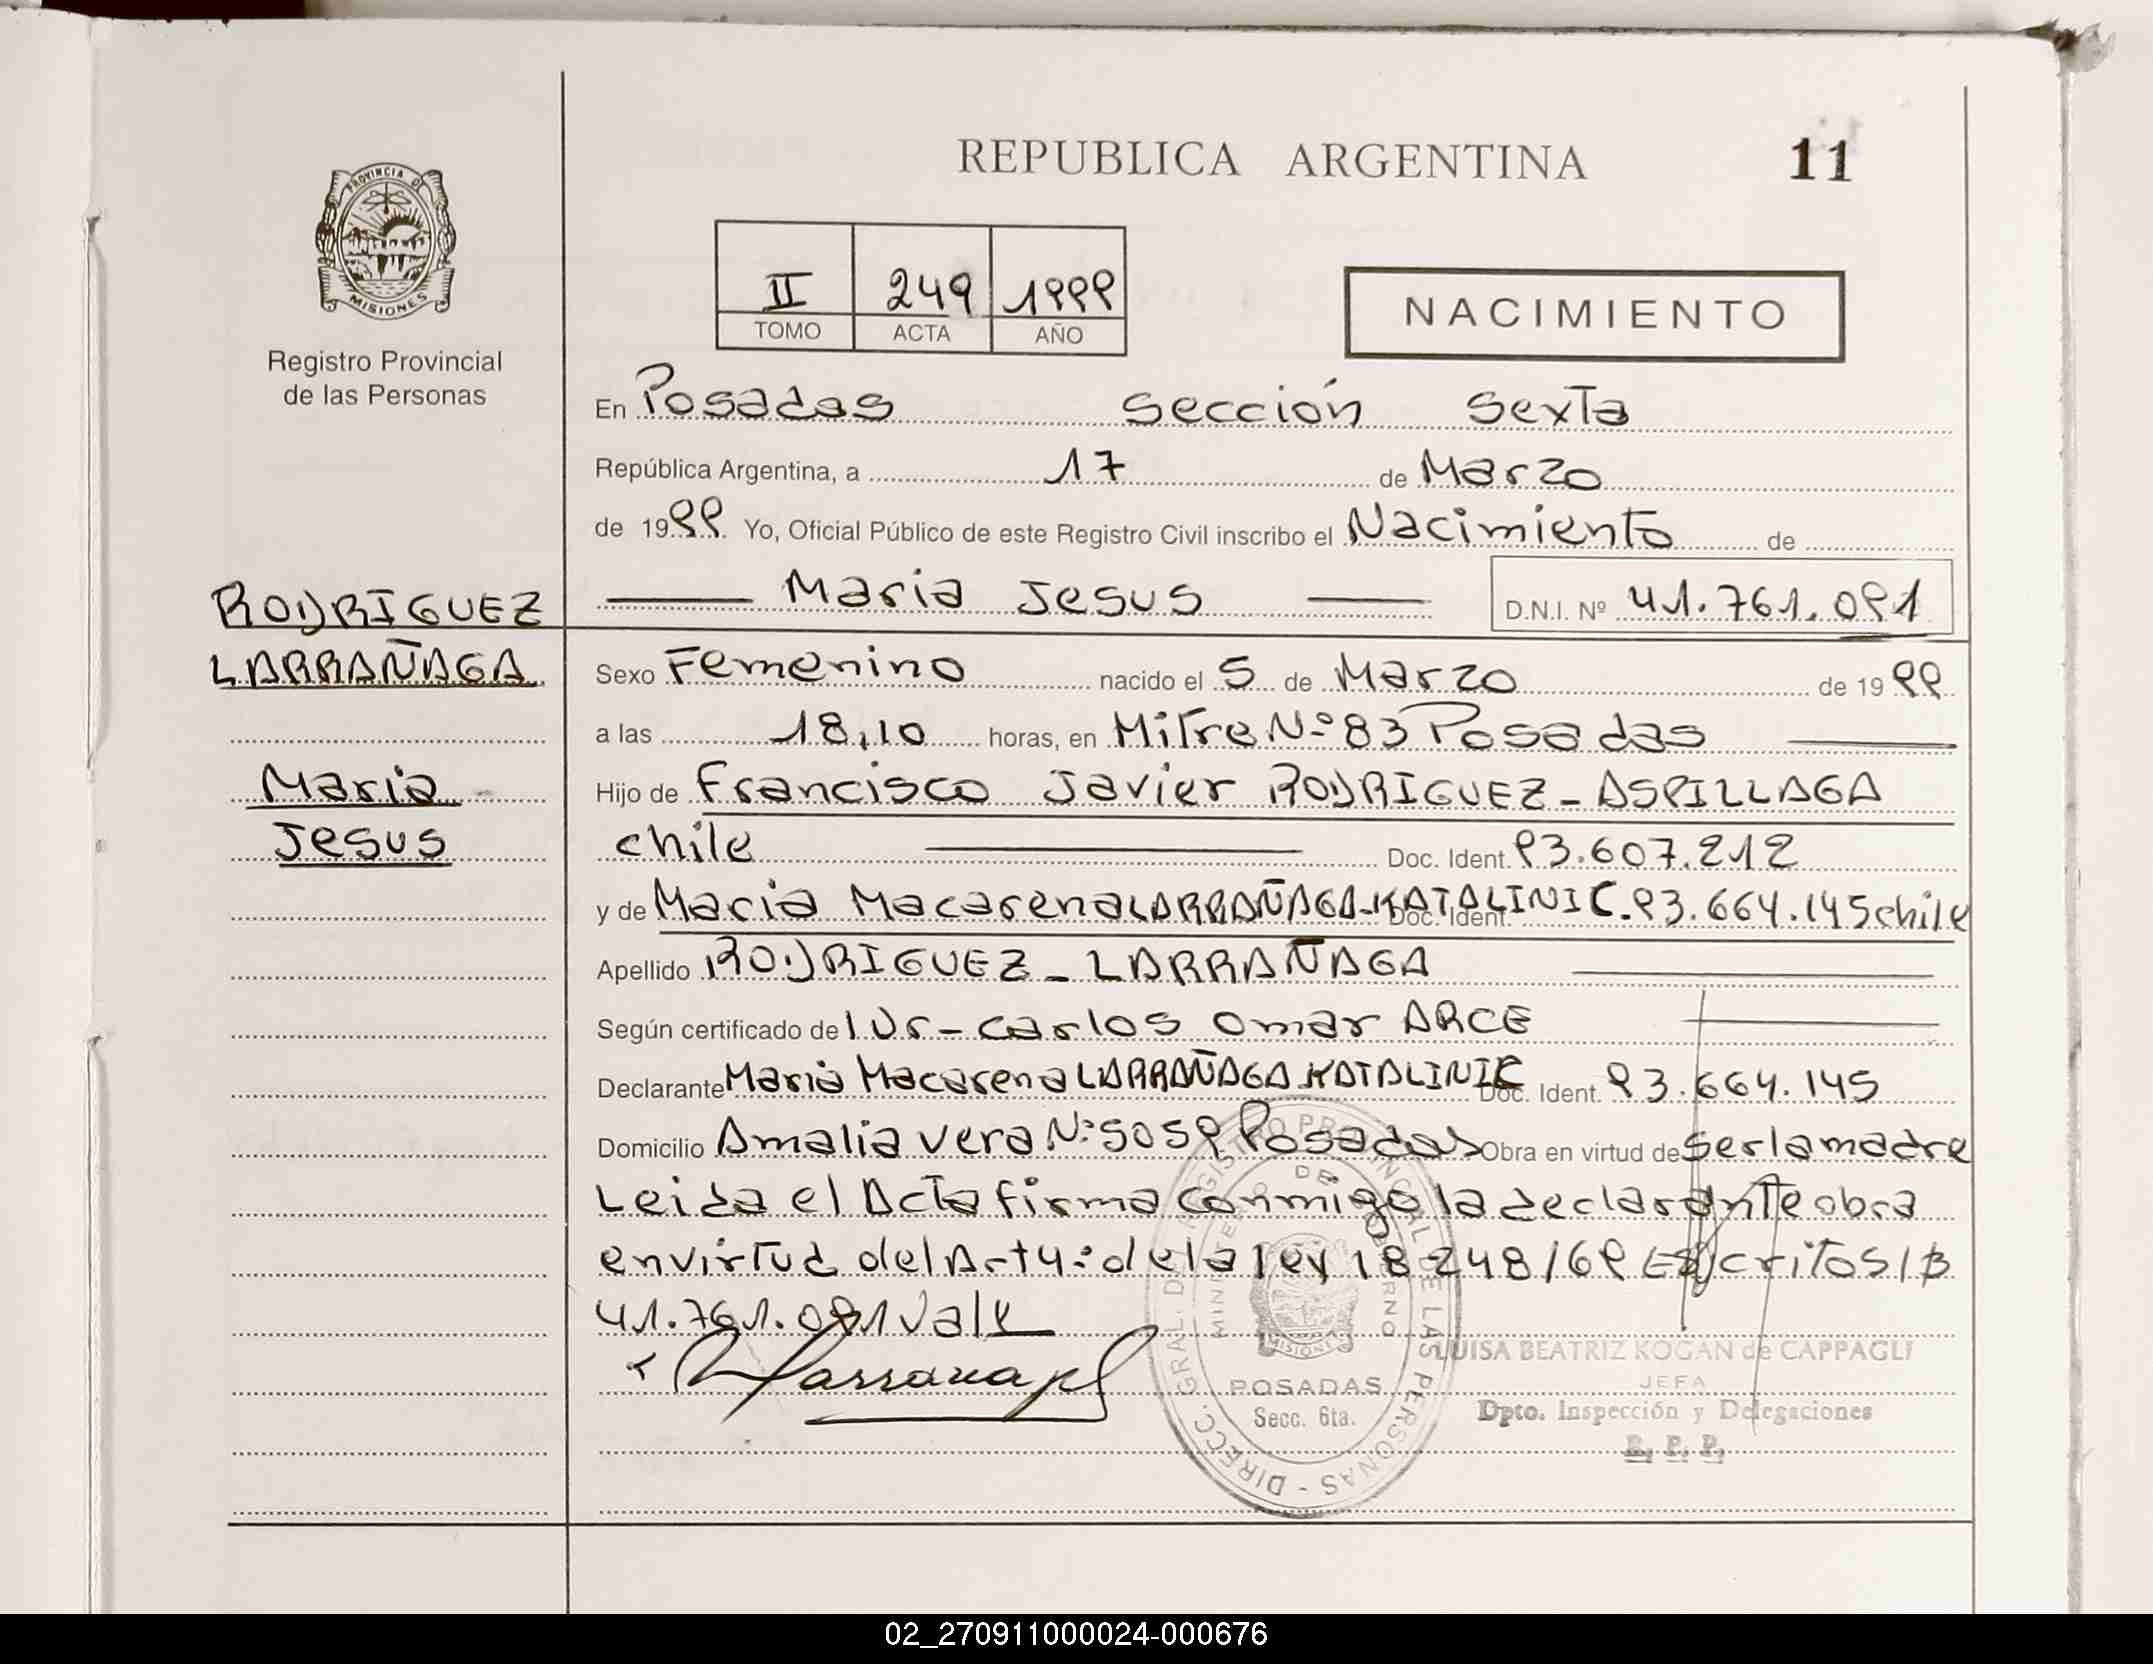 REPUBLICA ARGENTINA
11
PROVINCIA DE
MISIONES
Registro Provincial
de las Personas
II 249 1999
TOMO ACTA AÑO
NACIMIENTO
En Posadas Sección Sexta
República Argentina, a 17 de Marzo
de 1999 Yo, Oficial Público de este Registro Civil inscribo el Nacimiento de
Maria Jesus D.N.I. Nº 41.761.091
RODRIGUEZ
LARRAÑAGA
Maria
Jesus
Sexo Femenino nacido el 5 de Marzo de 1999
a las 18,10 horas, en Mitre Nº 83 Posadas
Hijo de Francisco Javier RODRIGUEZ - ASPILLAGA
chile Doc. Ident. 93.607.212
y de Maria Macarena LARRAÑAGA-KATALINIC. Doc. Ident. 93.664.145 chile
Apellido RODRIGUEZ - LARRAÑAGA
Según certificado de Dr - Carlos Omar ARCE
Declarante Maria Macarena LARRAÑAGA KATALINIC Doc. Ident. 93.664.145
Domicilio Amalia Vera Nº 5059 Posadas Obra en virtud de ser la madre
Leida el Acta firma conmigo la declarante obra
en virtud del Art 4º de la ley 18248/69 Escrito S/B
41.761.091 Vale
Larranaga
DIRECC. GRAL. DEL REGISTRO PROVINCIAL DE LAS PERSONAS
MINISTERIO DE GOBIERNO
MISIONES
POSADAS
Secc. 6ta.
LUISA BEATRIZ KOGAN de CAPPAGLI
JEFA
Dpto. Inspección y Delegaciones
R. P. P.
02_270911000024-000676